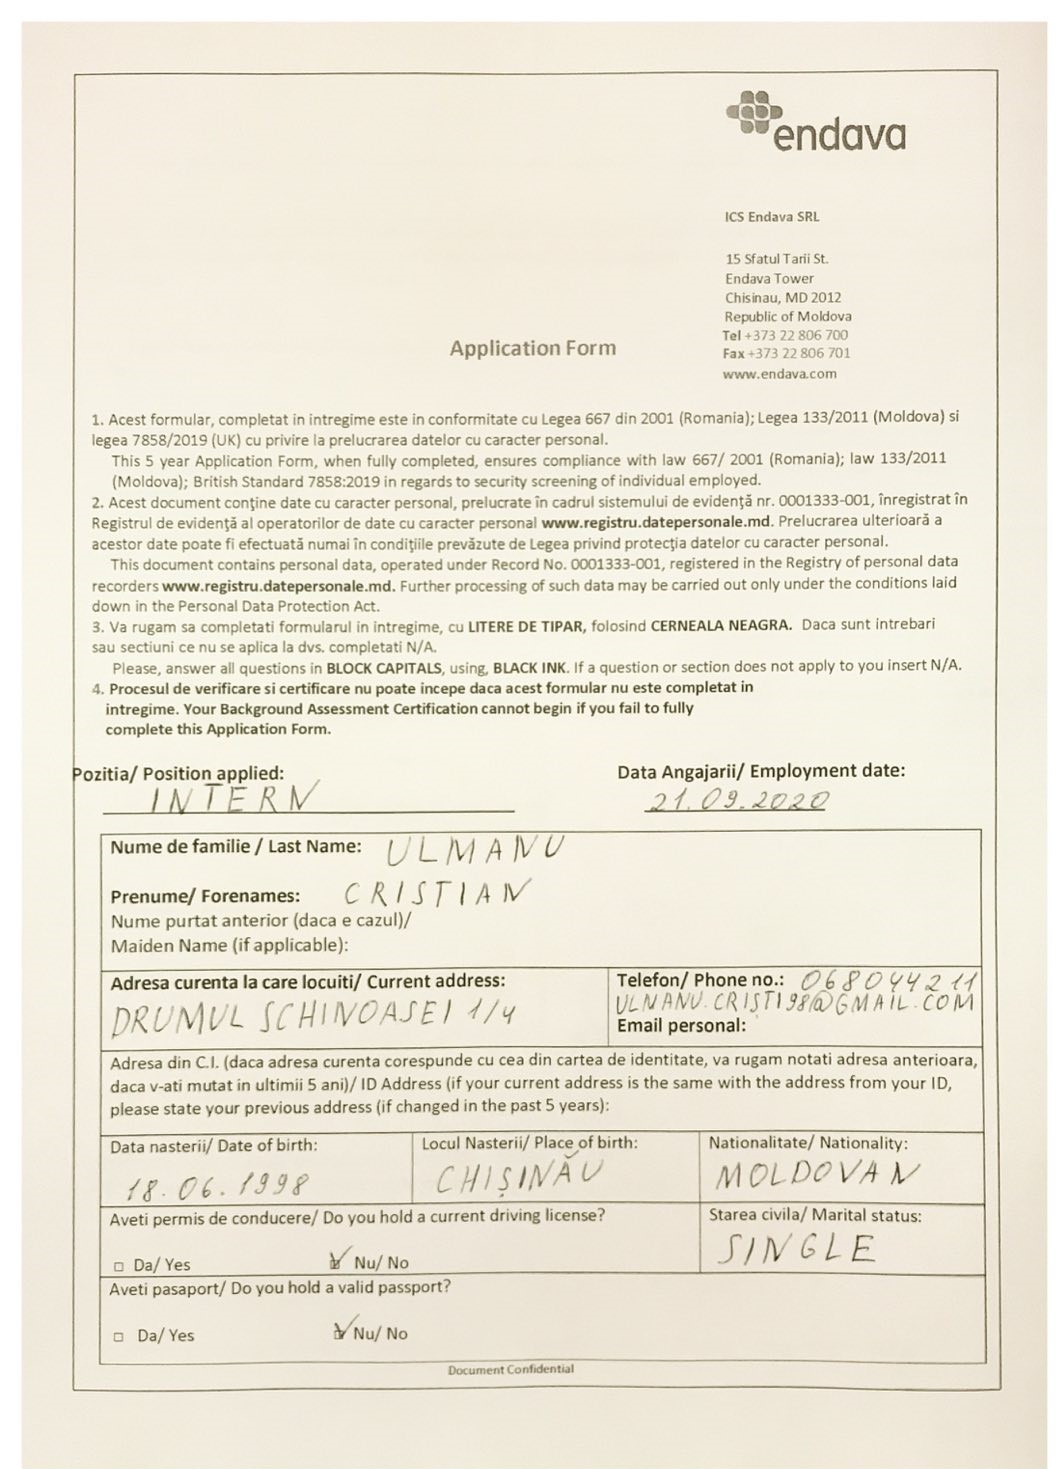 endava
ICS Endava SRL
15 Sfatul Tarii St.
Endava Tower
Chisinau, MD 2012
Republic of Moldova
Tel +373 22 806 700
Fax +373 22 806 701
www.endava.com
Application Form
1. Acest formular, completat in intregime este in conformitate cu Legea 667 din 2001 (Romania); Legea 133/2011 (Moldova) si
legea 7858/2019 (UK) cu privire la prelucrarea datelor cu caracter personal.
This 5 year Application Form, when fully completed, ensures compliance with law 667/ 2001 (Romania); law 133/2011
(Moldova); British Standard 7858:2019 in regards to security screening of individual employed.
2. Acest document conţine date cu caracter personal, prelucrate în cadrul sistemului de evidenţă nr. 0001333-001, înregistrat în
Registrul de evidenţă al operatorilor de date cu caracter personal www.registru.datepersonale.md. Prelucrarea ulterioară a
acestor date poate fi efectuată numai în condiţiile prevăzute de Legea privind protecţia datelor cu caracter personal.
This document contains personal data, operated under Record No. 0001333-001, registered in the Registry of personal data
recorders www.registru.datepersonale.md. Further processing of such data may be carried out only under the conditions laid
down in the Personal Data Protection Act.
3. Va rugam sa completati formularul in intregime, cu LITERE DE TIPAR, folosind CERNEALA NEAGRA. Daca sunt intrebari
sau sectiuni ce nu se aplica la dvs. completati N/A.
Please, answer all questions in BLOCK CAPITALS, using, BLACK INK. If a question or section does not apply to you insert N/A.
4. Procesul de verificare si certificare nu poate incepe daca acest formular nu este completat in
intregime. Your Background Assessment Certification cannot begin if you fail to fully
complete this Application Form.
Pozitia/ Position applied: Data Angajarii/ Employment date:
INTERN 21.09.2020
Nume de familie / Last Name: ULMANU
Prenume/ Forenames: CRISTIAN
Nume purtat anterior (daca e cazul)/
Maiden Name (if applicable):
Adresa curenta la care locuiti/ Current address:
DRUMUL SCHINOASEI 1/4
Telefon/ Phone no.: 068044211
ULMANU.CRISTI98@GMAIL.COM
Email personal:
Adresa din C.I. (daca adresa curenta corespunde cu cea din cartea de identitate, va rugam notati adresa anterioara,
daca v-ati mutat in ultimii 5 ani)/ ID Address (if your current address is the same with the address from your ID,
please state your previous address (if changed in the past 5 years):
Data nasterii/ Date of birth:
18.06.1998
Locul Nasterii/ Place of birth:
CHIȘINĂU
Nationalitate/ Nationality:
MOLDOVAN
Aveti permis de conducere/ Do you hold a current driving license?
Da/ Yes Nu/ No
Starea civila/ Marital status:
SINGLE
Aveti pasaport/ Do you hold a valid passport?
Da/ Yes Nu/ No
Document Confidential